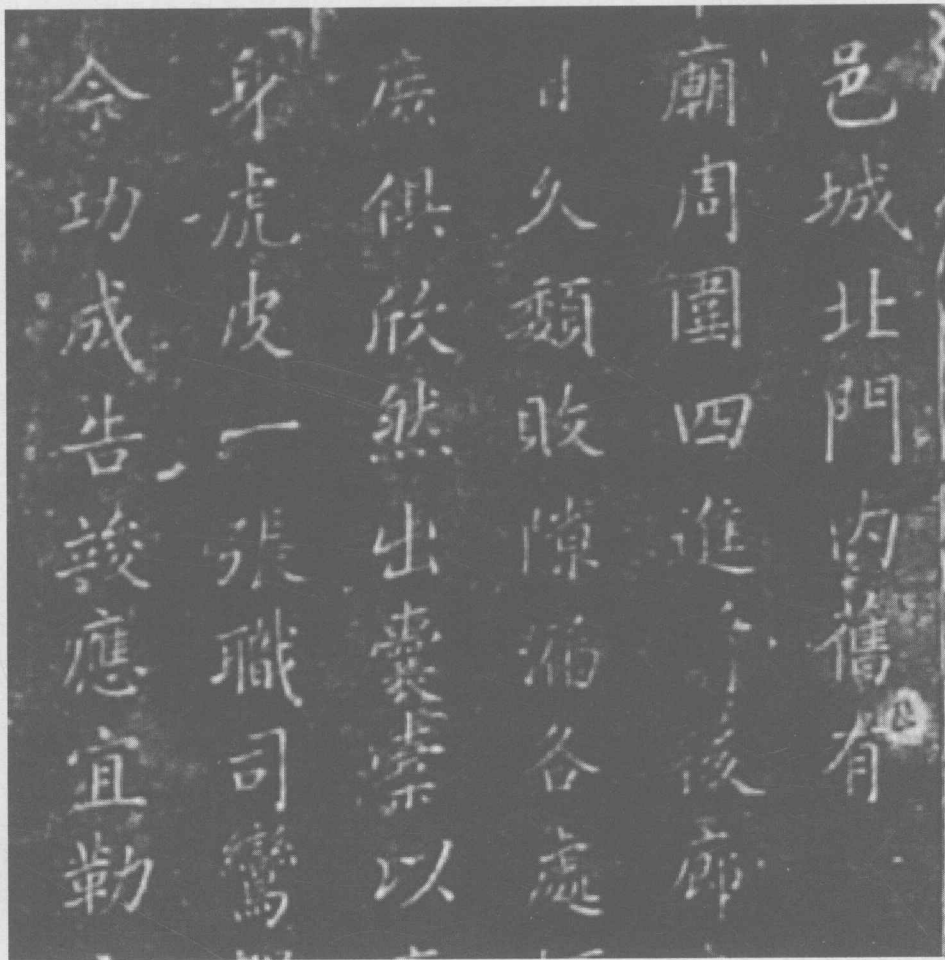 邑城北門内舊有
廟周圍四進 後廊
久頹敗隙漏各處
俱欣然出囊橐以
身虎皮一張職司鸞
今功成告竣應宜勒